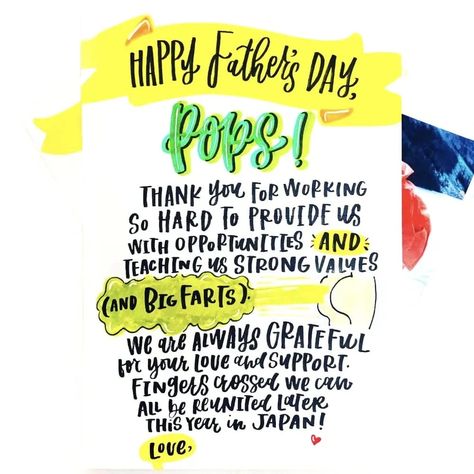 HAPPY Father's DAY,
POPS!
THANK YOU FOR WORKING
SO HARD TO PROVIDE US
WITH OPPORTUNITIES AND
TEACHING US STRONG VALUES
(AND BIG FARTS).
WE ARE ALWAYS GRATEFUL
for your LOVE and SUPPORT.
FINGERS CROSSED WE CAN
ALL BE REUNITED LATER
THIS YEAR in JAPAN!
LOVE,